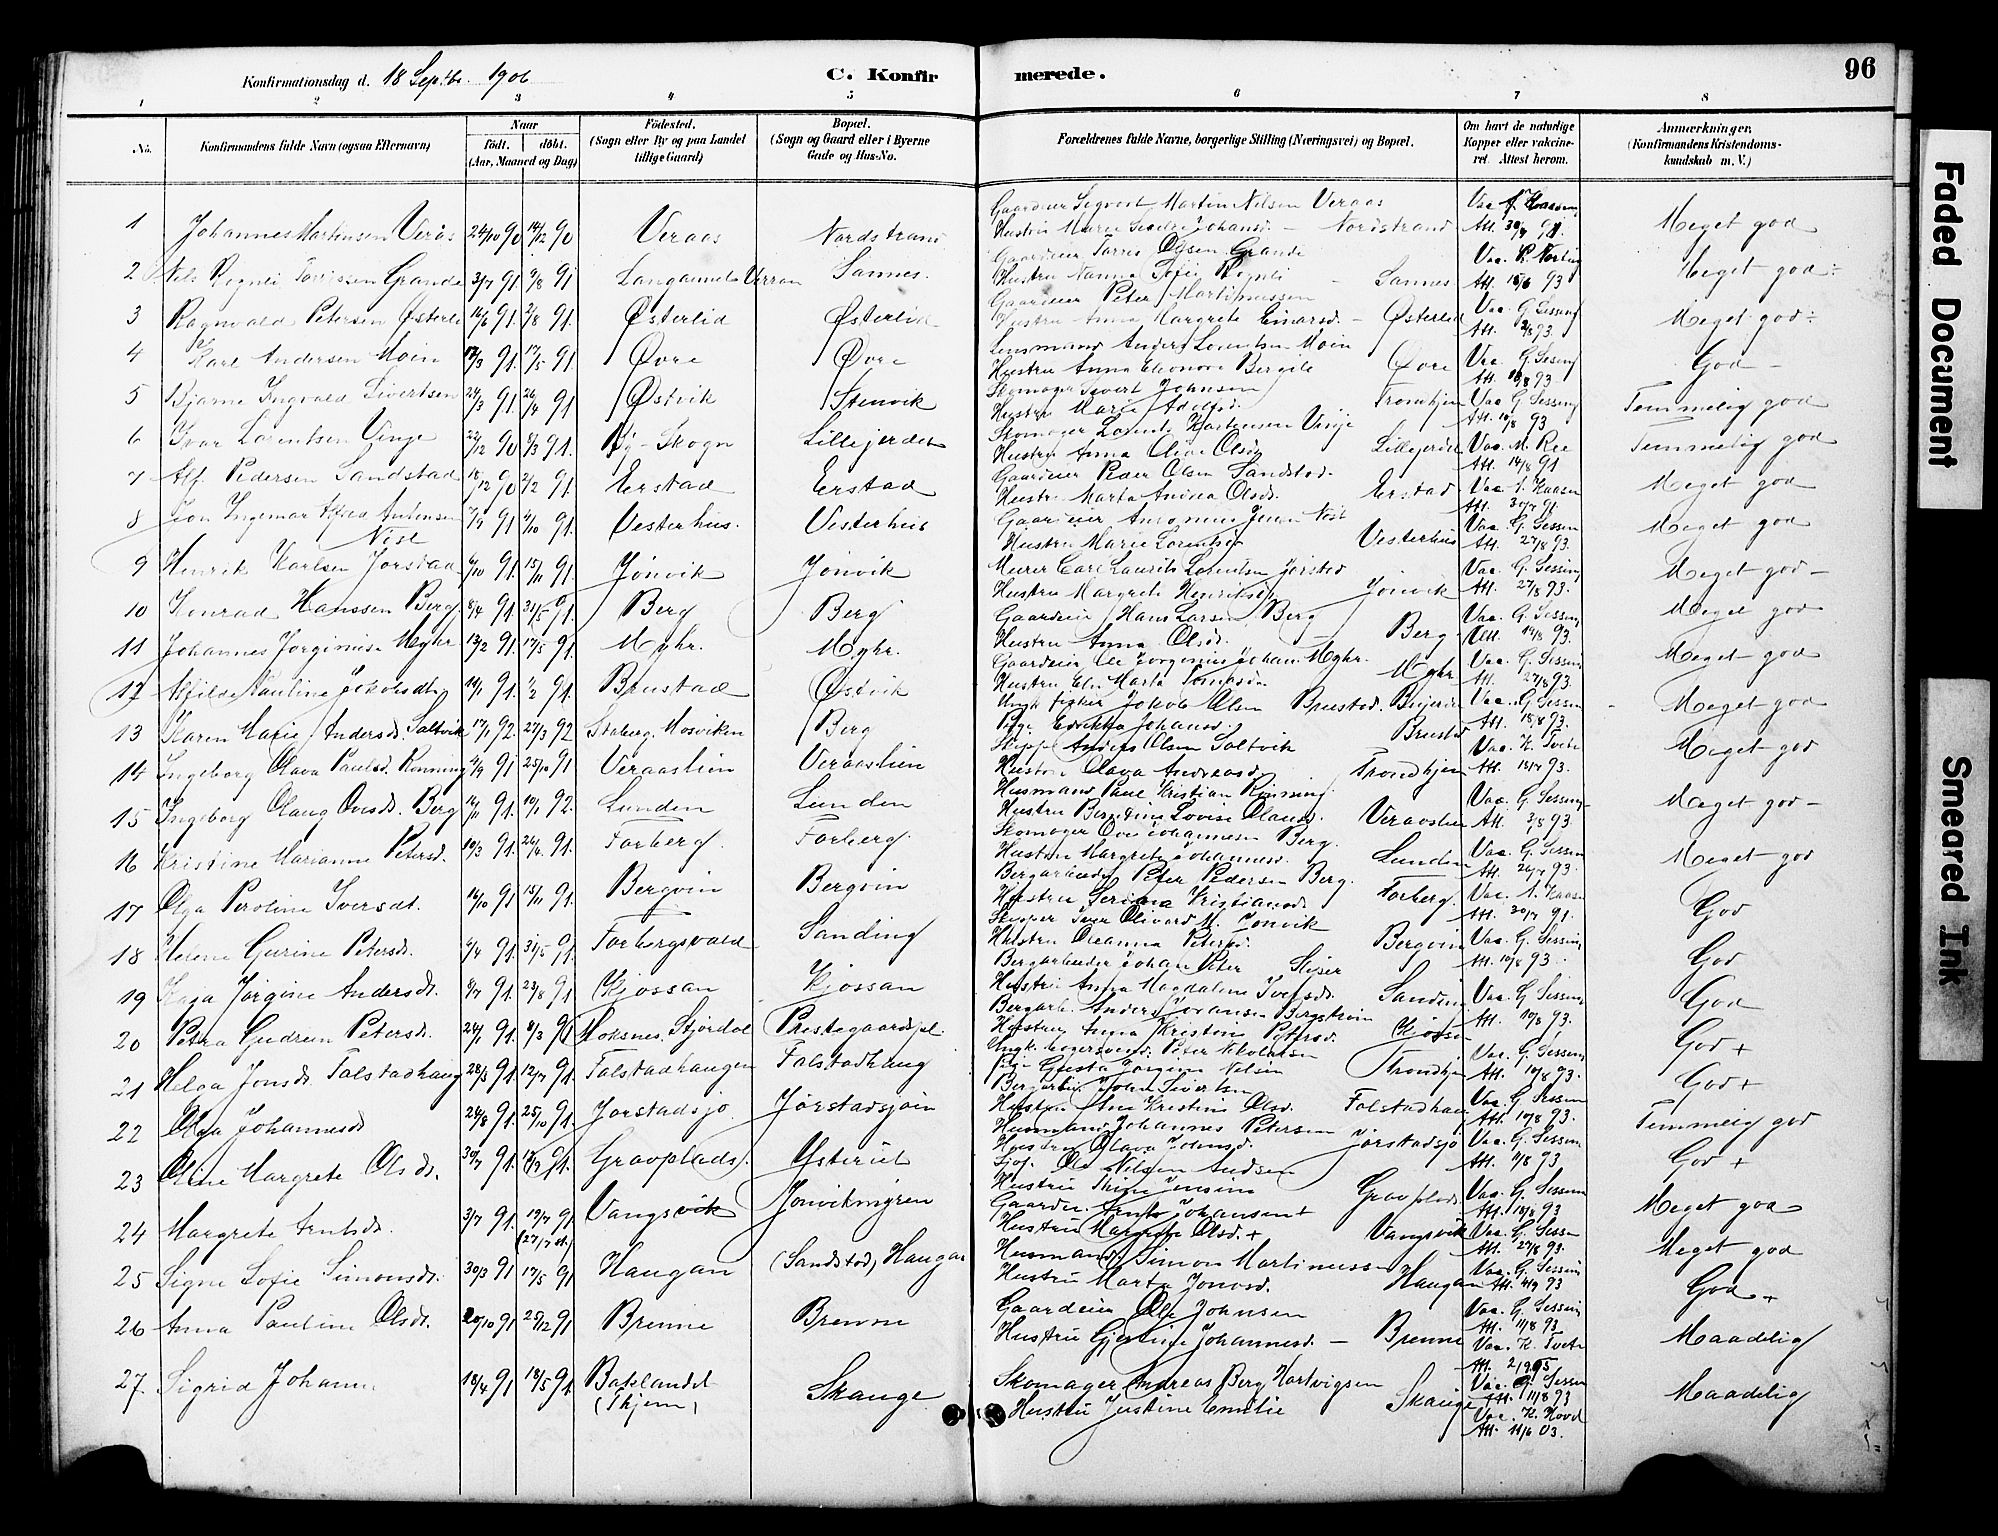 Konfirmationsdag d. 18 Septbr. 1906
C. Konfirmerede.
96
1 2 3 4 5 6 7 8
No.
Konfirmandens fulde Navn (ogsaa Efternavn)
Naar
født. døbt.
(Aar, Maaned og Dag)
Fødested.
(Sogn eller By og paa Landet tillige Gaard)
Bopæl.
(Sogn og Gaard eller i Byerne Gade og Hus-No.
Forældrenes fulde Navne, borgerlige Stilling (Næringsvei) og Bopæl.
Om havt de naturlige Kopper eller vakcineret. Attest herom.
Anmærkninger.
(Konfirmandens Kristendomskundskab m. V.)
1 Johannes Martinsen Verås 24/10 90 14/12 90 Veraas Nordstrand Gaardeier Sigvart Martin Nilsen Veraas Hustru Maren Johansd. – Nordstrand Att. 30/7 91. Meget god
2 Nils Rognli Torrissen Grande 3/7 91 91 Verran Sannes. Gaardeier Torris Olsen Grande Hustru Nanna Sofie Rognli – Sannes Att. 15/6 93 Meget god ÷
3 Ragnvald Petersen Østerli 91. 2/8 91. Østerlid Østerlid Gaardeier Peter Martinussen Hustru Anna Margrete Einarsd. – Østerlid Vac. G. Sessing Att. 93. Meget god ÷
4 Karl Andersen Moin 17/3 91. 17/5 91 Øvre Øvre Lensmand Anders Lorentsen Moin Hustru Anna Eleonora Bergitte Øvre Vac. G. Sessing Att. 93. God –
5 Bjarne Ingvald Sivertsen 24/3 91. 26/4 91 Østvik Stenvik Skomager Sivert Johnsen Hustru Marie Adolfsd. Trondhjem Vac. G. Sessing Att. 10/8 93 Temmelig god
6 Ivar Lorentsen Vinge 22/12 90 91. Skogn Lillejerdet Skomager Lorents Martinsen Vinge Hustru Anna Oline Olsd. Lillejerdet Vac. M. Ree Att. 14/8 91 Temmelig god
7 Alf Pedersen Sandstad 18/12 90 2/2 91. Erstad Erstad Gaardeier Peder Olsen Sandstad Hustru Marta Olsd. Erstad Vac. Att. 30/7 91. Meget god
8 Jon Ingemar Antonsen Nist 7/7 91 4/10 91. Vesterhus. Vesterhus Gaardeier Antonius Jensen Nist Hustru Marie Lorentsd. Vesterhus Vac. G. Sessen Att. 27/8 93. Meget god
9 Henrik Karlsen Jørstad 6/10 91. 15/11 91. Jonvik Jonvik Murer Carl Laurits Lorentsen Jørstad Hustru Margrete Henriksd. Jonvik Vac. G. Sessing Att. 27/8 93. Meget god –
10 Konrad Hanssen Berg 8/4 91. 31/5 91. Berg Berg Gaardeier Hans Larsen Berg Hustru Anna Olsd. – Berg. Vac. G. Sessing Att. 14/8 93. Meget god
11 Johannes Jørginius Myhr. 13/2 91. 17/5 91. Myhr. Myhr. Gaardeier Ole Jørginius Johan. Myhr. Hustru Marta Myhr Vac. G. Sessing Att. 27/8 93. Meget god
12 Alfilde Pauline Jakobsdtr. 14/1 91. 1/2 91. Brustad Østvik Ungk. fisker Jakob Olsen Brustad Pige Johansd. Brustad Vac. G. Sessen Att. 18/8 93. Meget god
13 Karen Marie Andersd. Saltvik 17/1 92. 27/3 92 Staberg. Mosviken Berg Skipper Anders Olsen Saltvik Hustru Olava Andreasd. Trondhjem Vac. K. Tvete Att. 93. Meget god
14 Ingeborg Olava Paulsd. Rønning 4/9 91 25/10 91 Veraaslien Veraaslien Husmand Paul Kristian Rønning Hustru Bergitine Lovise Olausd. Veraaslien Vac. G. Sessing Att. 3/8 93. Meget god –
15 Ingeborg Olaug Ovesd. Berg 91. 10/1 92. Lunden Lunden Skomager Ove Johannesen Berg. Hustru Margrete Johannesd. Lunden Vac. G. Sessen Att. 26/7 93. Meget god
16 Kristine Marianne Petersd. 10/3 91. 26/4 91. Forberg. Forberg. Bergarbeider Peter Pedersen Berg. Hustru Serina Kristiansd. Forberg. Vac. Att. 30/7 91. God
17 Olga Peroline Iversdt. 16/10 91 15/11 91. Bergvin Bergvin Skipper Iver Olivard M. Jonvik Hustru Oleanna Petersd. Bergvin Vac. G. Sessing Att. 10/8 93. God
18 Helene Gurine Petersd. 4/4 91. 31/5 91. Forbergsvald Sanding Bergarbeider Johan Peter Hustru Anna Magdalena Iversd. Sanding Vac. G. Sessing Att. 10/8 93. God
19 Kaja Jørgine Andersd. 8/7 91. 23/8 91 Kjøssan Kjøssan Bergarb. Anders Johansen Bergstrøm Hustru Anna Kristine Kjøssan Vac. G. Sessen Att. 10/8 93. God +
20 Petra Gudrun Petersd. 24/1 91. 8/3 91 Moksnes. Stjørdal Prestegaardspl. Ungk. Peter Pige Jørgine Nilsen Trondhjem Vac. G. Sessen Att. 10/8 93. God +
21 Helga Jonsd. Falstadhaug 28/3 91. 12/7 91. Falstadhaugen Falstadhaug Bergarbei. John Sivertsen Hustru Ane Kristine Olsd. Falstadhaug Temmelig god
22 Olga Johannesd. 24/8 91. 25/10 91. Jørstadsjø. Jørstadsjøen Husmand Johannes Petersen Hustru Olava Johnsd. Jørstadsjø Vac. G. Sessen Att. 11/8 93 God +
23 Oline Margrete Olsdt. 30/7 91. 91. Gravplads. Ysterut Ole Nilsen Hustru Jensine Gravplads Vac. G. Sessen Att. 18/8 93 Meget god
24 Margrete Arntsd. 3/7 91. 19/7 91 (27/7 st.) Vangsvik Jonvikmyren Gaardei. Arnt Johansen + Hustru Margrete Olsd. + Vangsvik Vac. G. Sessen Att. 27/8 93. Meget god
25 Signe Sofie Simonsd. 30/3 91 17/5 91 Haugan (Sandstad) Haugan Husmand Simon Martinussen Hustru Marta Jonasd. Haugan Vac. G. Sessing Att. 93 God +
26 Anna Pauline Olsdt. 20/10 91 25/12 91 Brenne Brenne Gaardeier Ole Johnsen Hustru Gjertine Johannesd. – Brenne Vac. G. Sessing Att. 11/8 93 Vac. K. Tvete Maadelig
27. Sigrid Johann 18/4 91 18/5 91 Baklandet (Thjem) Skauge Skomager Andreas Berg Hartvigsen Hustru Justine Emelie Skauge Vac. G. Sessen Att. 11/8 93 Vac. K. Hovd Att. 11/6 03. Maadelig
Faded Document
Smeared Ink